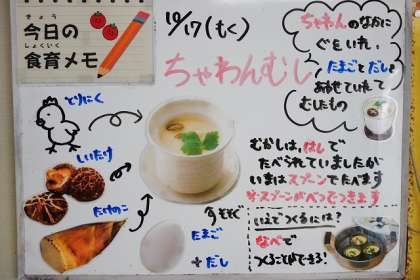 きょう
今日の
しょくいく
食育メモ
10/17(もく)
ちゃわんむし
ちゃわんのなかに
ぐをいれ、
たまごとだしを
あわせていれて
むしたもの
とりにく
しいたけ
たけのこ
むかしは、はしで
たべられていましたが
いまはスプーンでたべます
※スプーンがべつでつきます
たまご
+だし
いえでつくるには?
なべで
つくることができる!